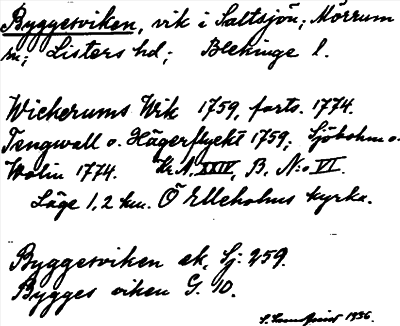 Byggesviken, vik i Saltsjön; Mörrum
sn; Listers hd; Blekinge l.
Wickerums Wik 1759, forts. 1774.
Tengwall o. Hägerflyckt 1759; Sjöbohm o.
Wolin 1774. Kr.A. XXIV, B, N:o VI.
Läge 1,2 km. Ö Elleholms kyrka.
Byggesviken ek. Sj. 259.
Bygges viken G. 10.
1936.